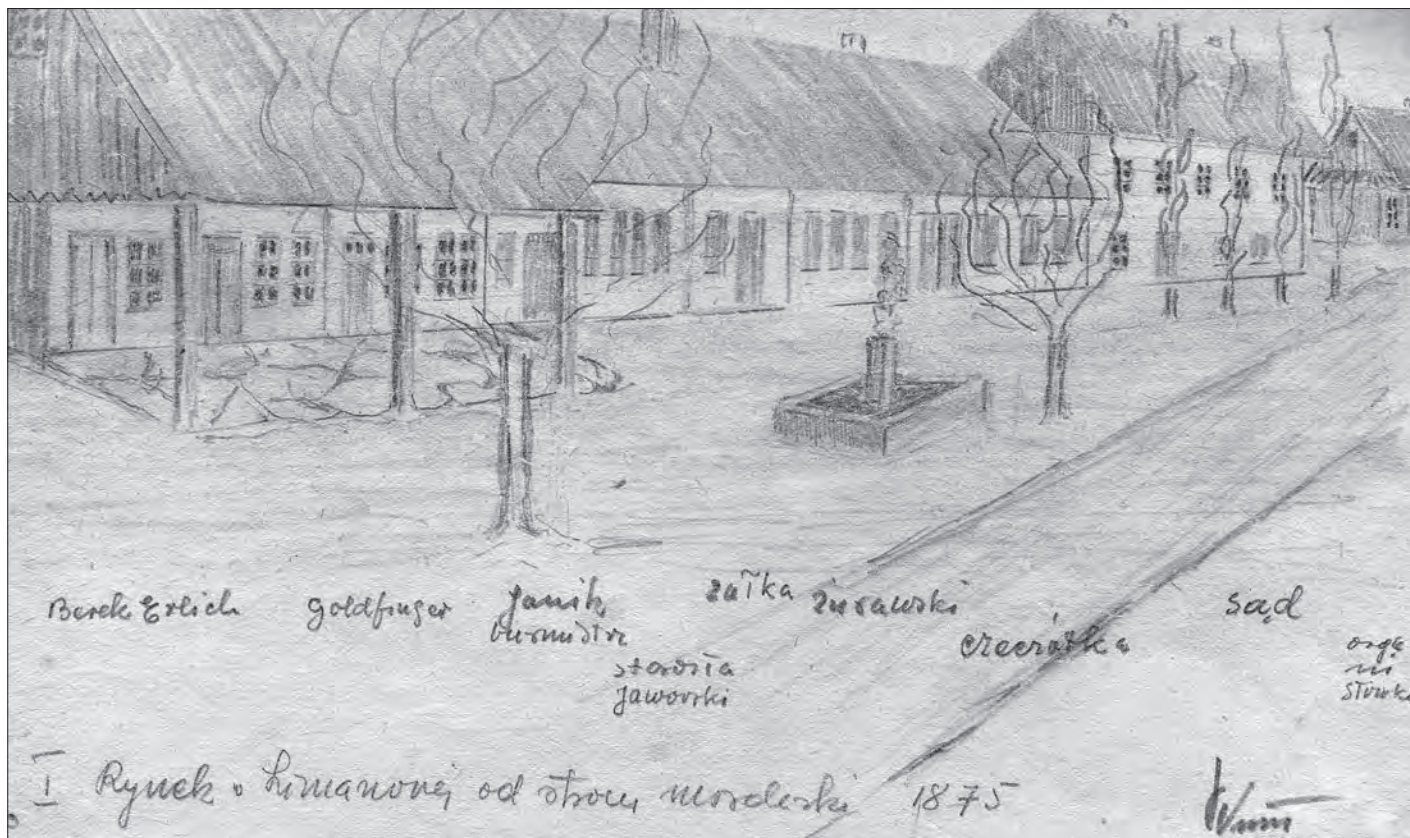 Berek Erlich
Goldfinger
Janik
burmistrz
starosta
Jaworski
Załka
Żurawski
czeczótka
sąd
orga
ni
I Rynek w Limanowej od strony mordarki 1875